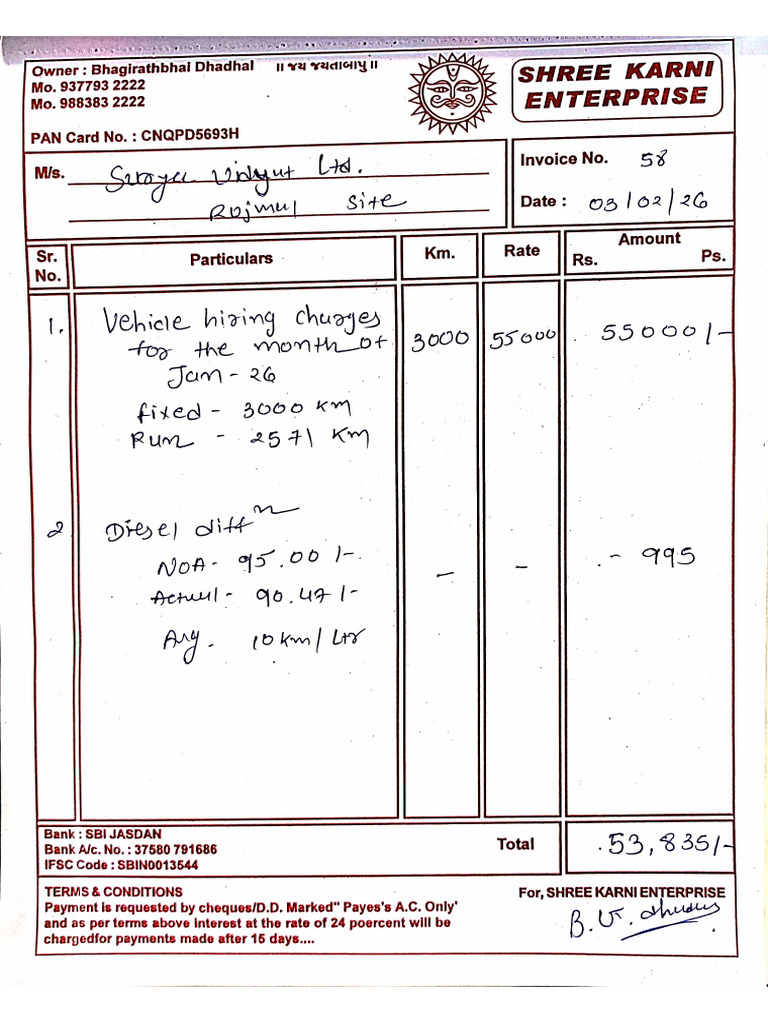 Owner : Bhagirathbhai Dhadhal
॥ જય જયતાબાપુ ॥
Mo. 937793 2222
Mo. 988383 2222
PAN Card No. : CNQPD5693H
SHREE KARNI
ENTERPRISE
M/s. Vidyut Ltd.
Site
Invoice No. 58
Date : 03/02/26
Sr. No. Particulars Km. Rate Amount Rs. Ps.
1. Vehicle hiring charges 3000 55000 55000/-
for the month of
Jan - 26
fixed - 3000 KM
Run - 2571 KM
2 Diesel diff
NOA - 95.00/- - - - 995
Actual - 90.47/-
Avg. 10 km/Ltr
Bank : SBI JASDAN
Bank A/c. No. : 37580 791686
IFSC Code : SBIN0013544
Total 53,835/-
TERMS & CONDITIONS
Payment is requested by cheques/D.D. Marked" Payes's A.C. Only'
and as per terms above interest at the rate of 24 poercent will be
chargedfor payments made after 15 days....
For, SHREE KARNI ENTERPRISE